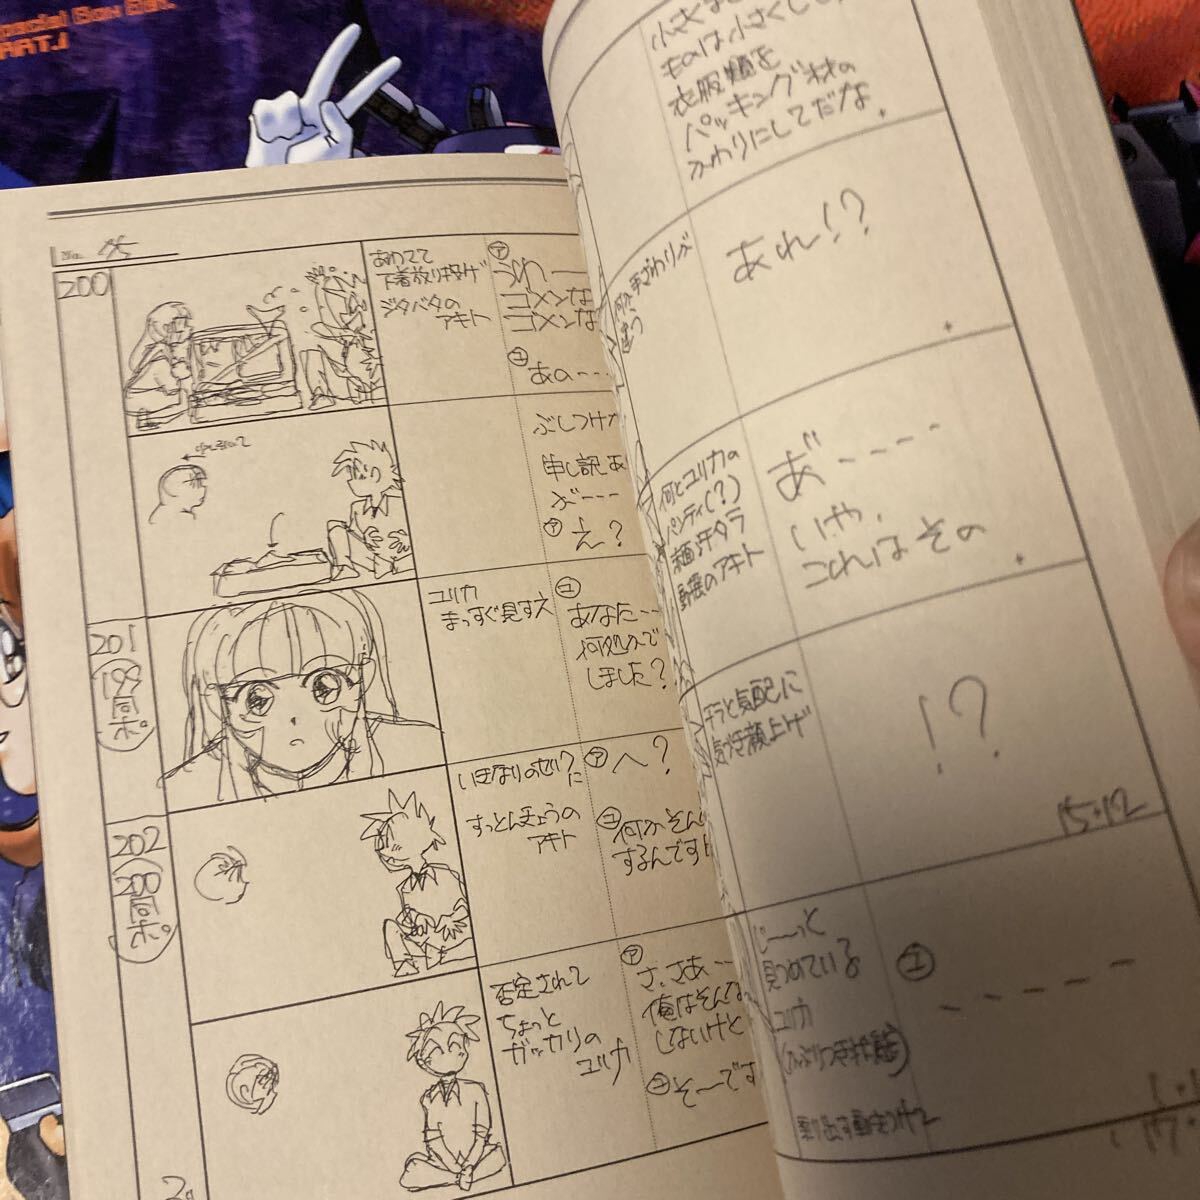 Special Box Set.
PART.1
No. 45
200
あわてて
下着放り投げ
ジタバタの
アキト
ア
うわー
ゴメンな
ゴメンな
ユ
あの---
ぶしつけ
申し訳あ
が---
ア え?
201
ユリカ
まっすぐ見すえ
ユ
あなた--
何処かで
しました?
いきなりのセリフに
すっとんきょうの
アキト
ア へ?
ユ 何かそん
するんです
202
否定されて
ちょっと
ガッカリの
ユリカ
ア
さ、さあ--
俺はそんな
しないけど
ユ そーです
小さくな
ものは小さくし
衣服類を
パッキング材の
かわりにしてだな。
何か手ざわりが
違う
あれ!?
何とユリカの
パンティ(?)
顔汗タラ
動揺のアキト
あ゛----
いや、
これはその
チラと気配に
気付き顔上げ
!?
15+12
じーっと
見つめている
ユリカ
ユ -----